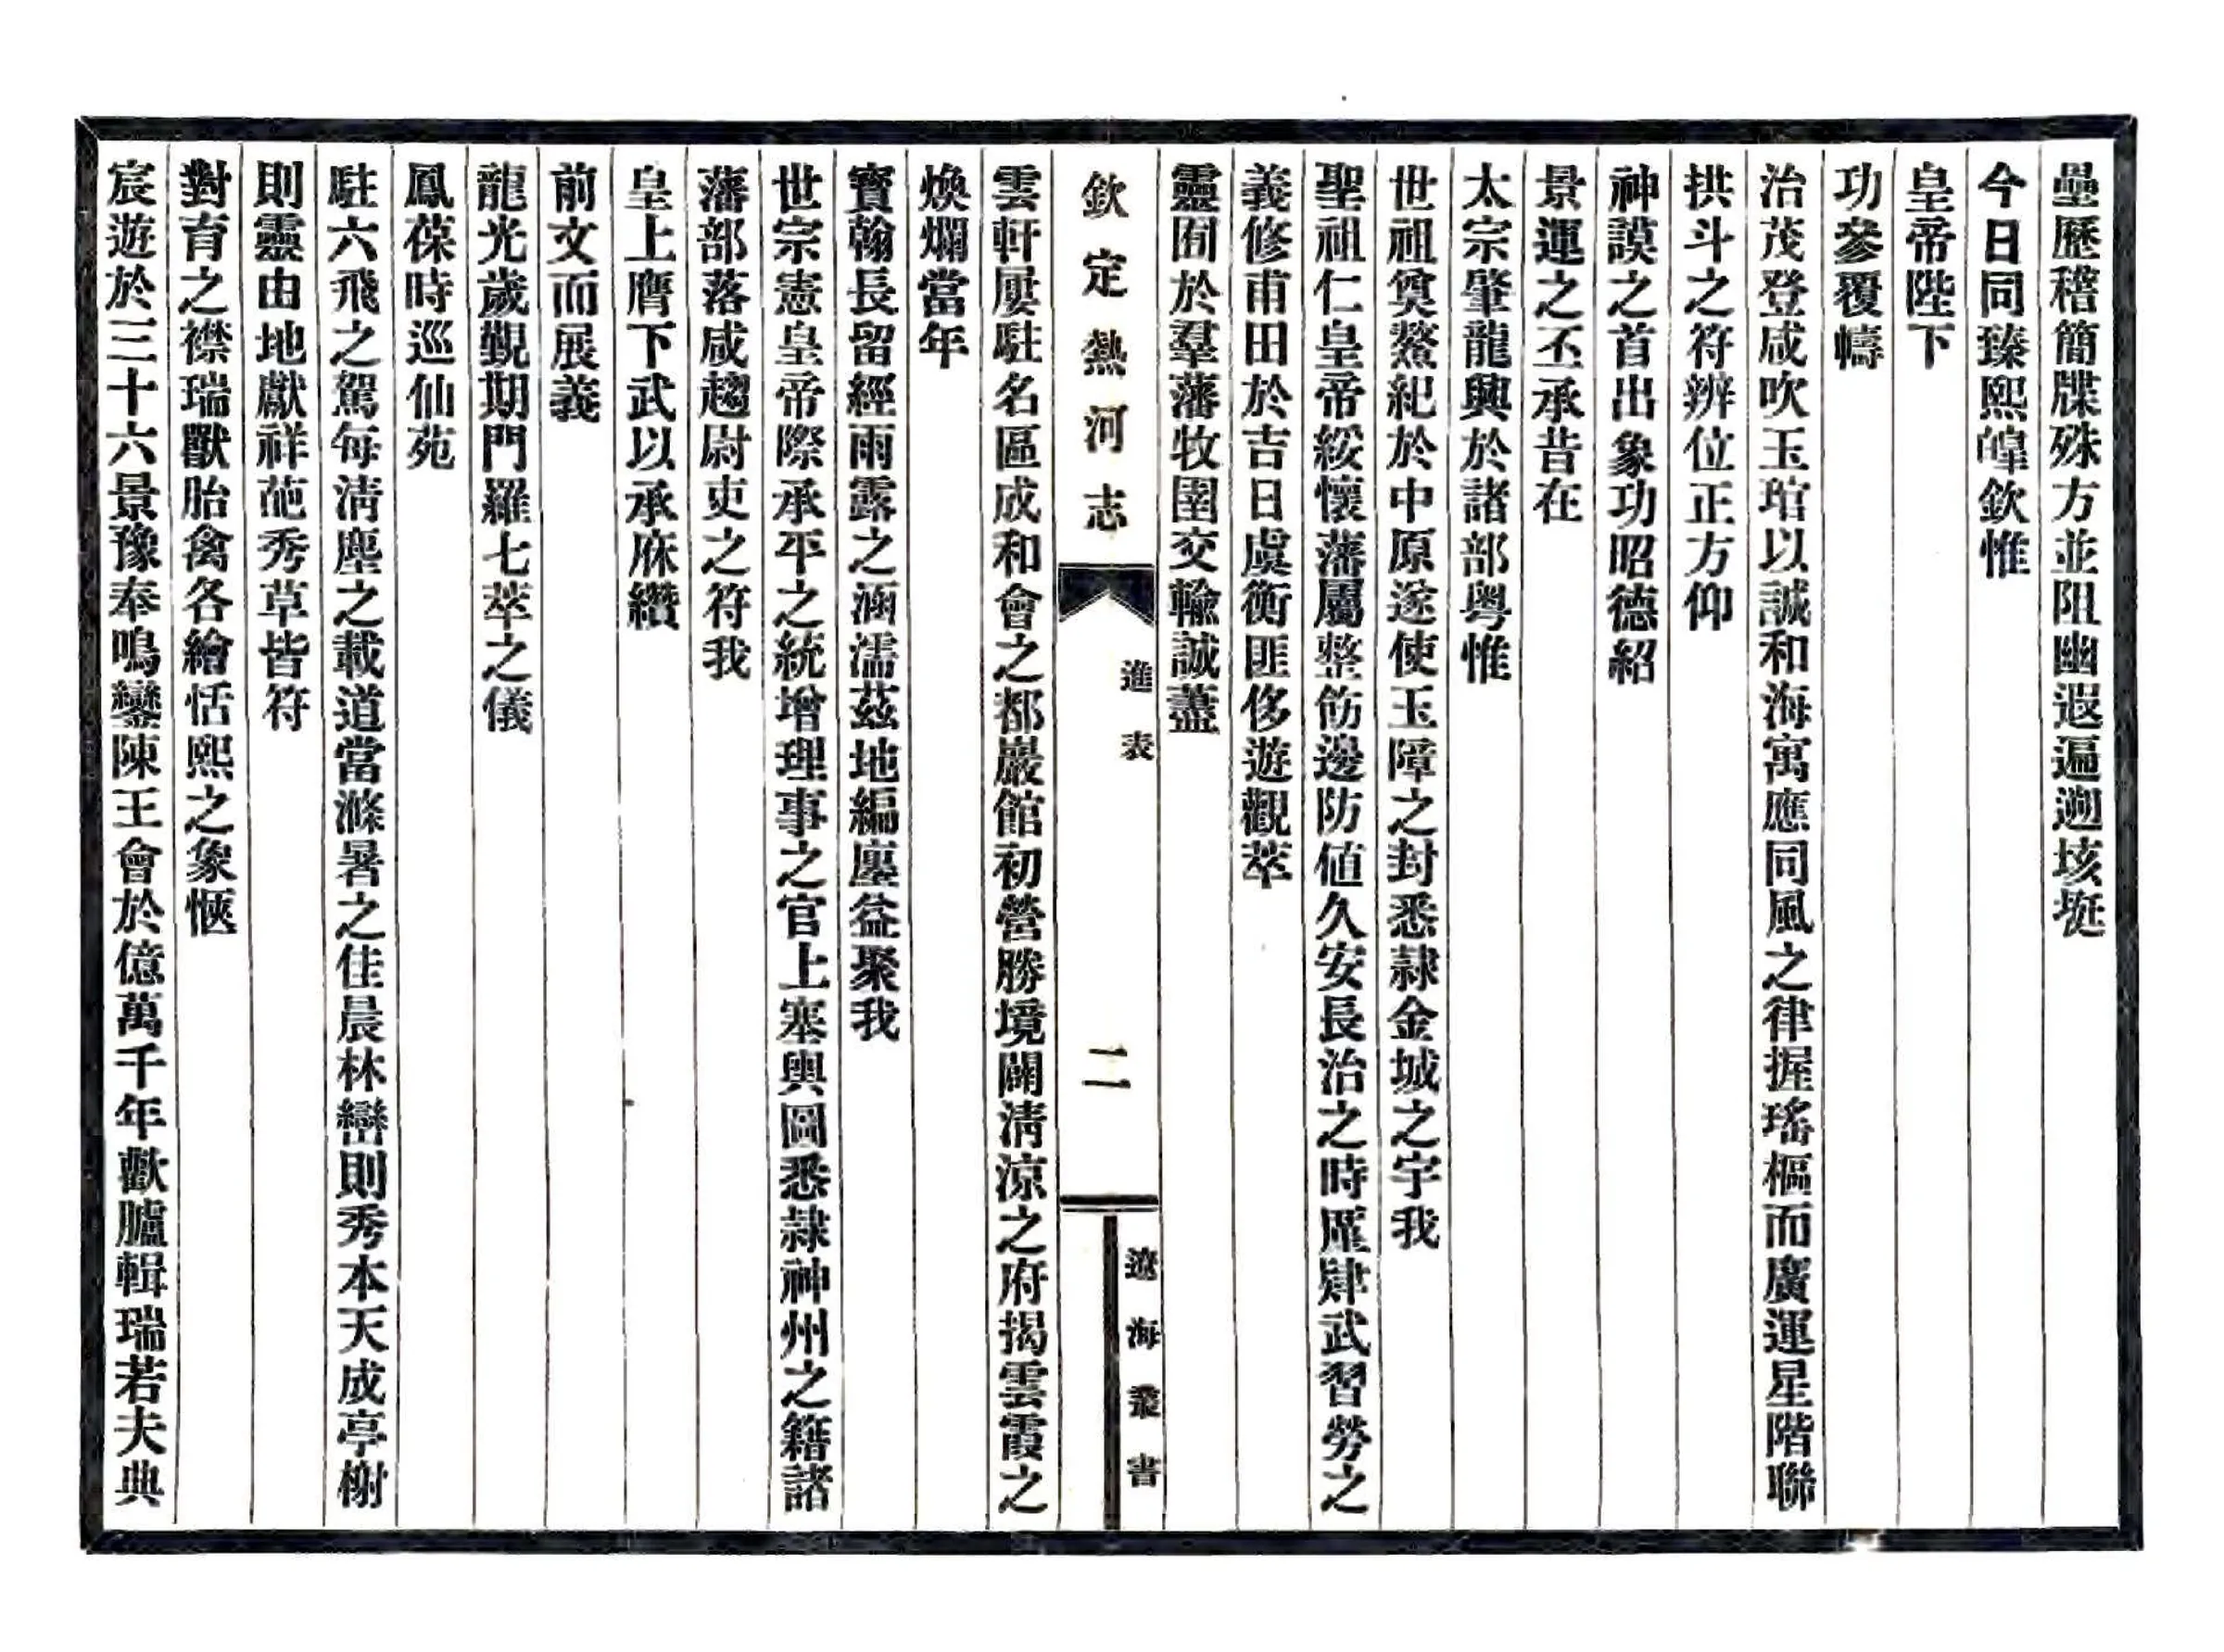 壘歷稽簡牒殊方並阻幽遐遍遡垓埏
今日同臻熙皥欽惟
皇帝陛下
功參覆幬
治茂登咸吹玉琯以誠和海寓應同風之律握瑤樞而廣運星階聯
拱斗之符辨位正方仰
神謨之首出象功昭德紹
景運之丕承昔在
太宗肇龍興於諸部粤惟
世祖奠鰲紀於中原遂使玉障之封悉隷金城之宇我
聖祖仁皇帝綏懷藩屬整飭邊防値久安長治之時厪肄武習勞之
義修甫田於吉日虞衡匪侈遊觀萃
靈囿於羣藩牧圉交輸誠藎
欽定熱河志
進表
二
遼海叢書
雲軒屢駐名區成和會之都巖館初營勝境闢淸涼之府揭雲霞之
煥爛當年
寶翰長留經雨露之涵濡茲地編廛益聚我
世宗憲皇帝際承平之統增理事之官上塞輿圖悉隷神州之籍諸
藩部落咸趨尉吏之符我
皇上膺下武以承庥纘
前文而展義
龍光歲覲期門羅七萃之儀
鳳葆時巡仙苑
駐六飛之駕每淸塵之載道當滌暑之佳晨林巒則秀本天成亭榭
則靈由地獻祥葩秀草皆符
對育之襟瑞獸胎禽各繪恬熙之象愜
宸遊於三十六景豫奉鳴鑾陳王會於億萬千年歡臚輯瑞若夫典